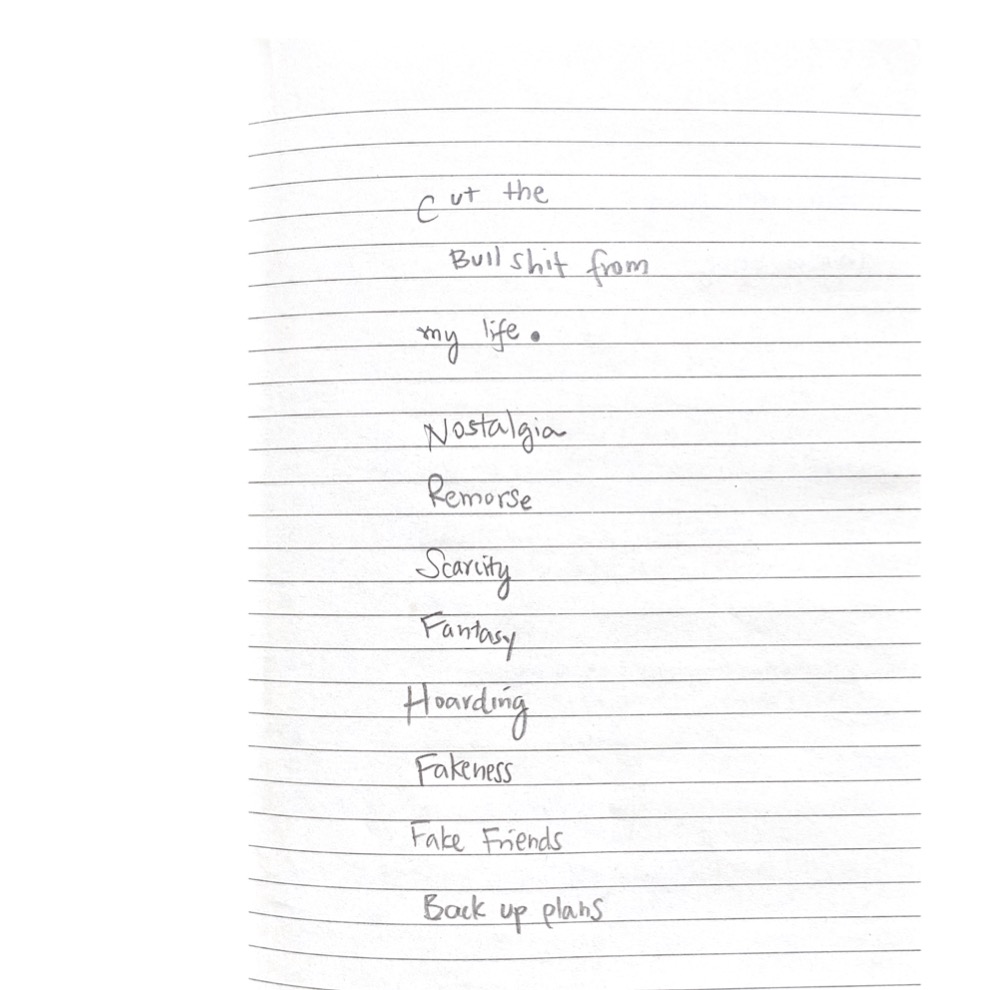 Cut the
Bullshit from
my life.
Nostalgia
Remorse
Scarcity
Fantasy
Hoarding
Fakeness
Fake Friends
Back up plans